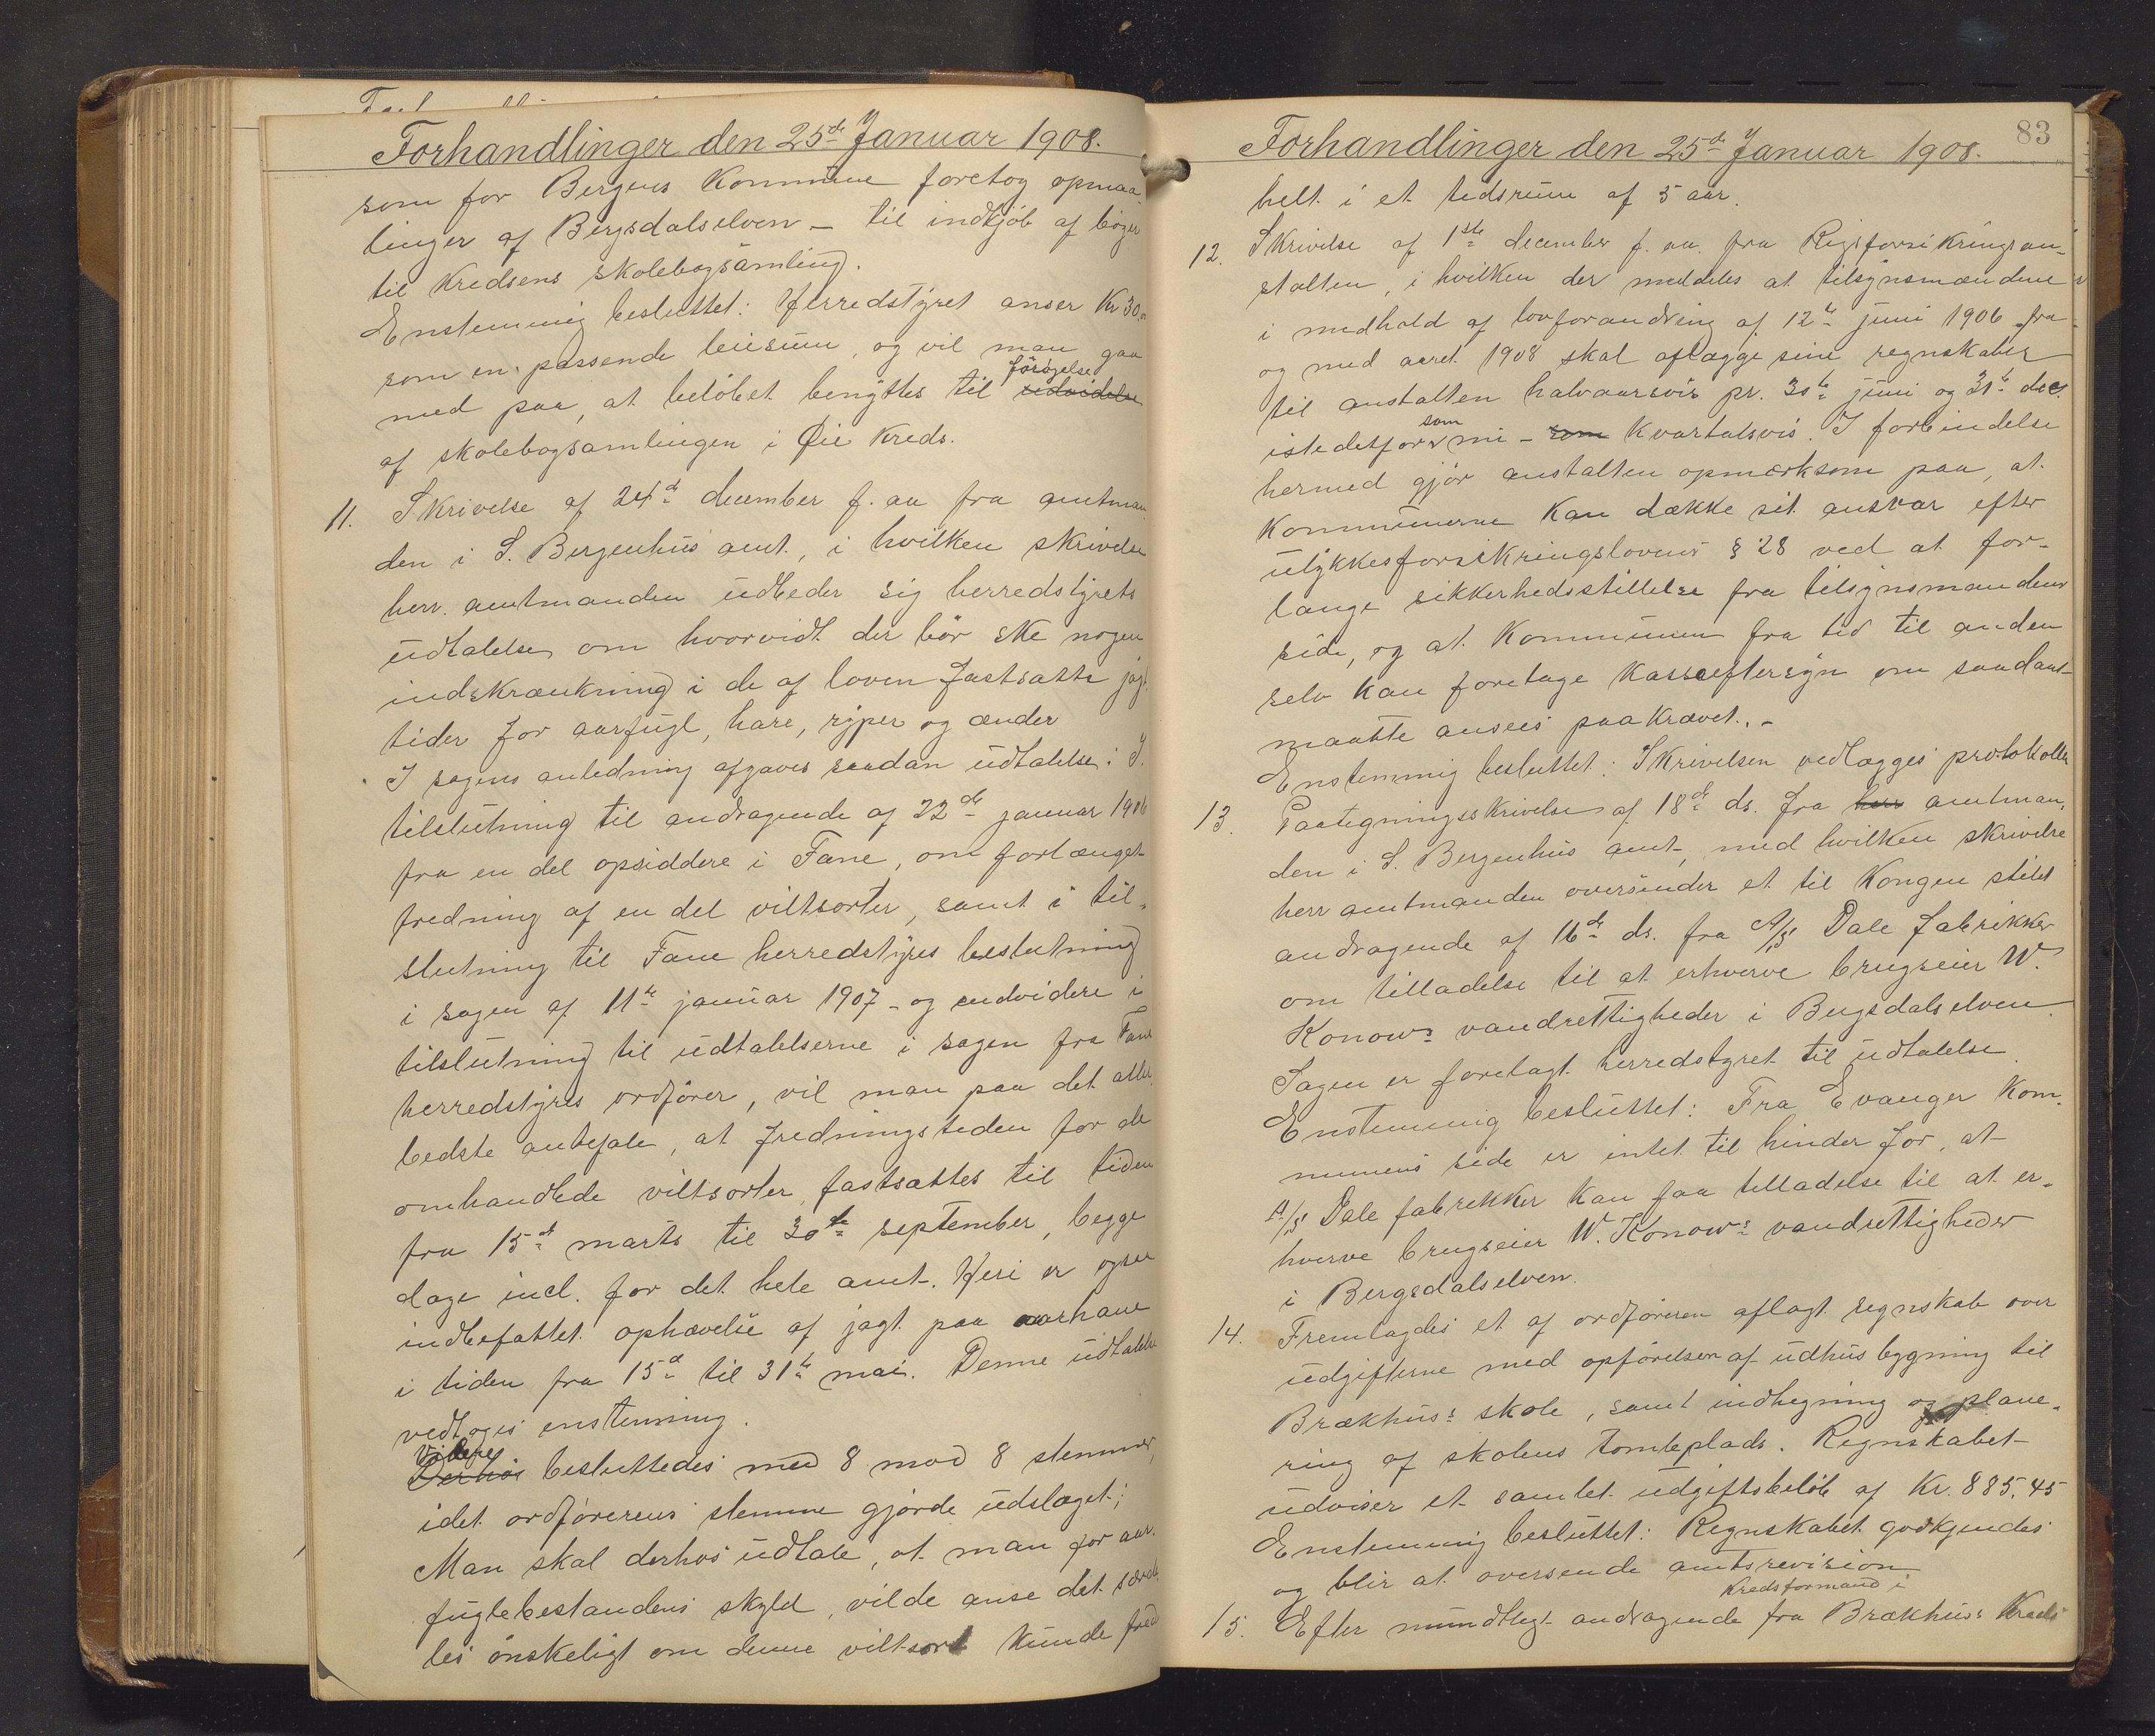 Forhandlinger den 25de Januar 1908.
som for Bergens Kommune foretog opmaa
linger af Bergsdalselven - til indkjøb af bøger
til Kredsens skolebogsamling.
Enstemmig besluttet: Herredstyret anser Kr 30,
som en passende leiesum, og vil man gaa
med paa, at beløbet benyttes til udvidelse forøgelse
af skolebogsamlingen i Øie Kreds.
11. Skrivelse af 24de december f. aa fra amtman
den i S. Bergenhus amt, i hvilken skrivelse
herr. amtmanden udbeder sig herredstyrets
udtalelse om hvorvidt der bør ske nogen
indskrænkning i de af loven fastsatte jagt
tider for aarfugl, hare, ryper og ænder
I sagens anledning afgaves saadan udtalelse: I
tilslutning til andragende af 22de januar 1906
fra en del opsiddere i Fane, om forlænget
fredning af en del viltsorter, samt i til-
slutning til Fane herredstyres beslutning
i sagen af 11te januar 1907 - og endvidere i
tilslutning til udtalelserne i sagen fra Fane
herredstyres ordfører, vil man paa det aller
bedste anbefale, at fredningstiden for de
omhandlede viltsorter fastsættes til tiden
fra 15de marts til 30te september, begge
dage incl. for det hele amt. Heri er ogsaa
indbefattet ophævelse af jagt paa aarhane
i tiden fra 15de til 31te mai. Denne udtalelse
vedtoges enstemmig.
Derhos Videre besluttedes med 8 mod 8 stemmer,
idet ordførerens stemme gjorde udslaget;
Man skal derhos udtale, at man for aar-
fuglebestandens skyld, vilde anse det særde
les ønskeligt om denne viltsort kunde fred
83
Forhandlinger den 25de Januar 1908.
helt i et tidsrum af 5 aar.
12. Skrivelse af 1ste december f. aa. fra Rigsforsikringsan-
stalten, i hvilken der meddeles at tilsynsmændene
i medhold af lovforandring af 12te juni 1906 fra
og med aaret 1908 skal aflægge sine regnskaber
til anstalten halvaarsvis pr. 30te juni og 31te dec.
istedetfor som nu - som Kvartalsvis. I forbindelse
hermed gjør anstalten opmærksom paa, at
Kommunerne Kan dække sit ansvar efter
ulykkesforsikringslovens § 28 ved at for-
lange sikkerhedsstillelse fra tilsynsmandens
side, og at Kommunen fra tid til anden
selv kan foretage Kasseeftersyn om saadant
maatte ansees paakrævet. -
Enstemmig besluttet: Skrivelsen vedlægges protokollen
13. Paategningsskrivelse af 18de ds. fra herr amtman-
den i S. Bergenhus amt, med hvilken skrivelse
herr amtmanden oversender et til Kongen stilet
andragende af 16de ds. fra A/S Dale fabrikker
om tilladelse til at erhverve brugseier W.
Konow's vandrettigheder i Bergsdalselven.
Sagen er forelagt herredstyret til udtalelse.
Enstemmig besluttet: Fra Evanger Kom-
munens side er intet til hinder for, at
A/S Dale fabrikker Kan faa tilladelse til at er-
hverve brugseier W. Konow's vandrettigheder
i Bergsdalselven.
14. Fremlagdes et af ordføreren aflagt regnskab over
udgifterne med opførelsen af udhusbygning til
Brækhus's skole, samt indhegning og plane-
ring af skolens tomteplads. Regnskabet
udviser et samlet udgiftsbeløb af Kr. 885,45
Enstemmig besluttet: Regnskabet godkjendes
og blir at oversende amtsrevision
15. Efter mundtligt andragende fra Kredsformand i Brækhus's Kreds